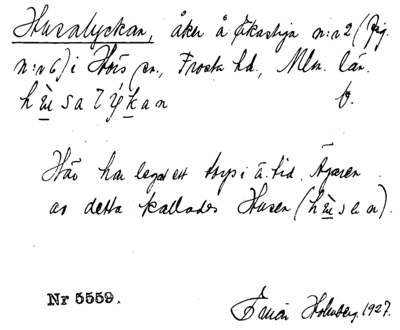 Husalyckan, åker å Ekastiga n:r 2 (fig.
n:r 6) i Hörs sn., Frosta hd., Mlm. län.
hu̱salýḵan b.
Här har legat ett torp i ä. tid. Ägaren
av detta kallades Husen (hu̱san).
Nr 5559.
Holmberg. 1927.